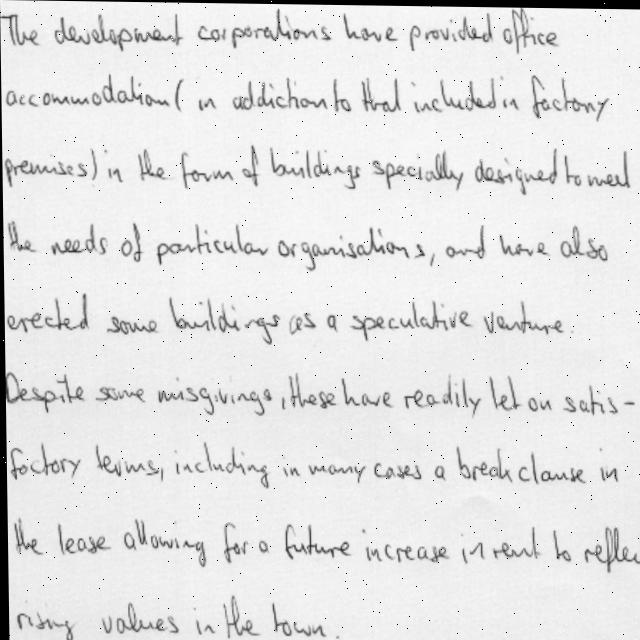 The development corporations have provided office
accommodation ( in addiction to that included in factory
premises) in the form of buildings specially designed to meet
the needs of particular organisations, and have also
erected some buildings as a speculative venture.
Despite some misgivings, these have readily let on satis-
factory terms, including in many cases a break clause in
the lease allowing for a future increase in rent to reflec
rising values in the town.